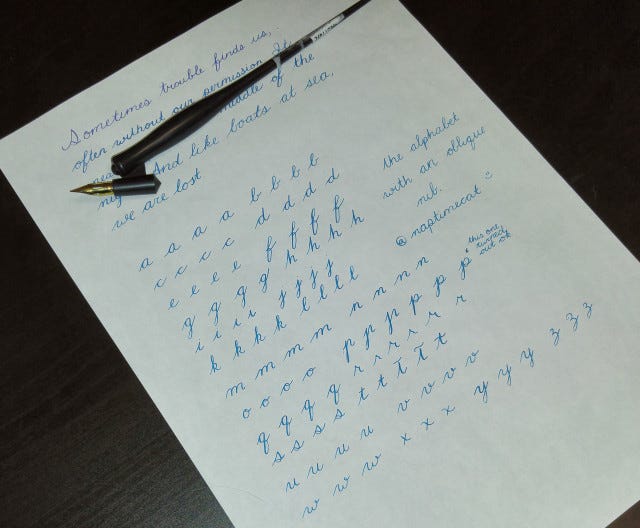 Sometimes trouble finds us,
often without our permission. It
middle of the
And like boats at sea,
we are lost
the alphabet
with an oblique
nib.
@naptimecat
this one
turned
out ok
a a a a b b b b
c c c c d d d d
e e e e f f f f
g g g g h h h h
i i i i j j j j
k k k k l l l l
m m m m n n n n
o o o o p p p p p p
q q q q r r r r r r
s s s s t t t t t
u u u u v v v v
w w w x x x y y y z z z